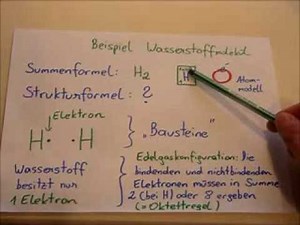 Beispiel Wasserstoffmolekül
Summenformel: H2 H Atom-
modell
Strukturformel: ?
Elektron
H· ·H } „Bausteine"
Wasserstoff
besitzt nur
1 Elektron
Edelgaskonfiguration: Die
bindenden und nichtbindenden
Elektronen müssen in Summe
2 (bei H) oder 8 ergeben
(=Oktettregel)